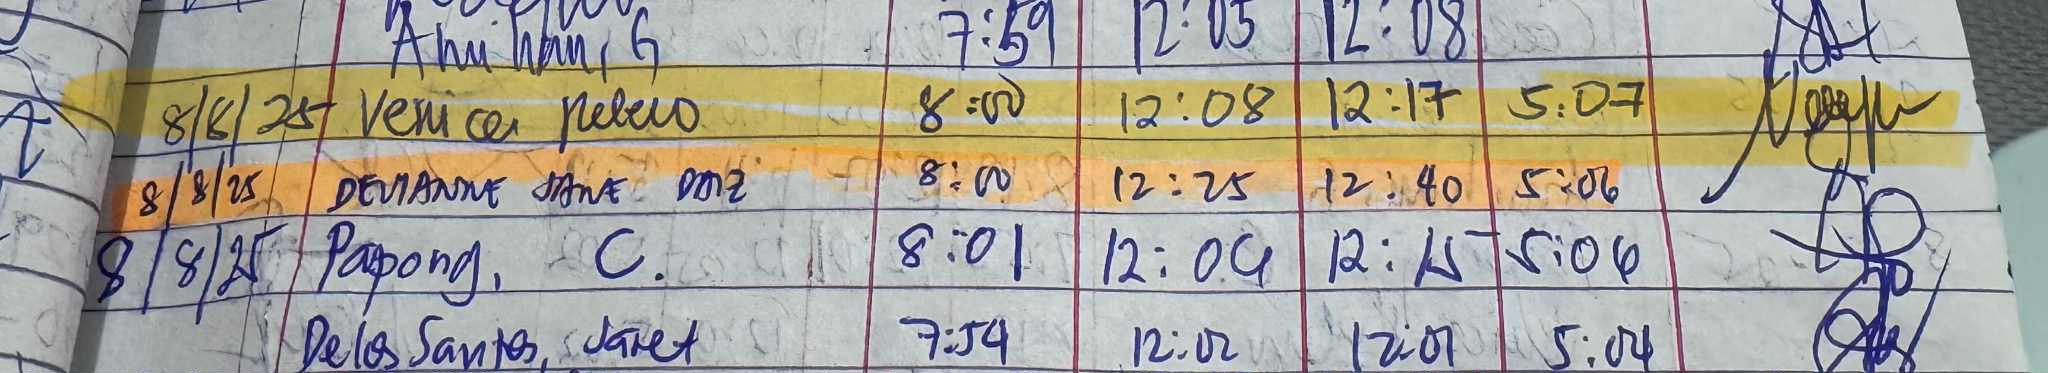 7:59 12:05 12:08
8/8/25 Venice 8:00 12:08 12:17 5:07
8/8/25 DEVIANNE JANE DAIZ 8:00 12:25 12:40 5:06
8/8/25 Papong, C. 8:01 12:04 12:15 5:06
Delos Santos, Janet 7:54 12:02 12:07 5:04